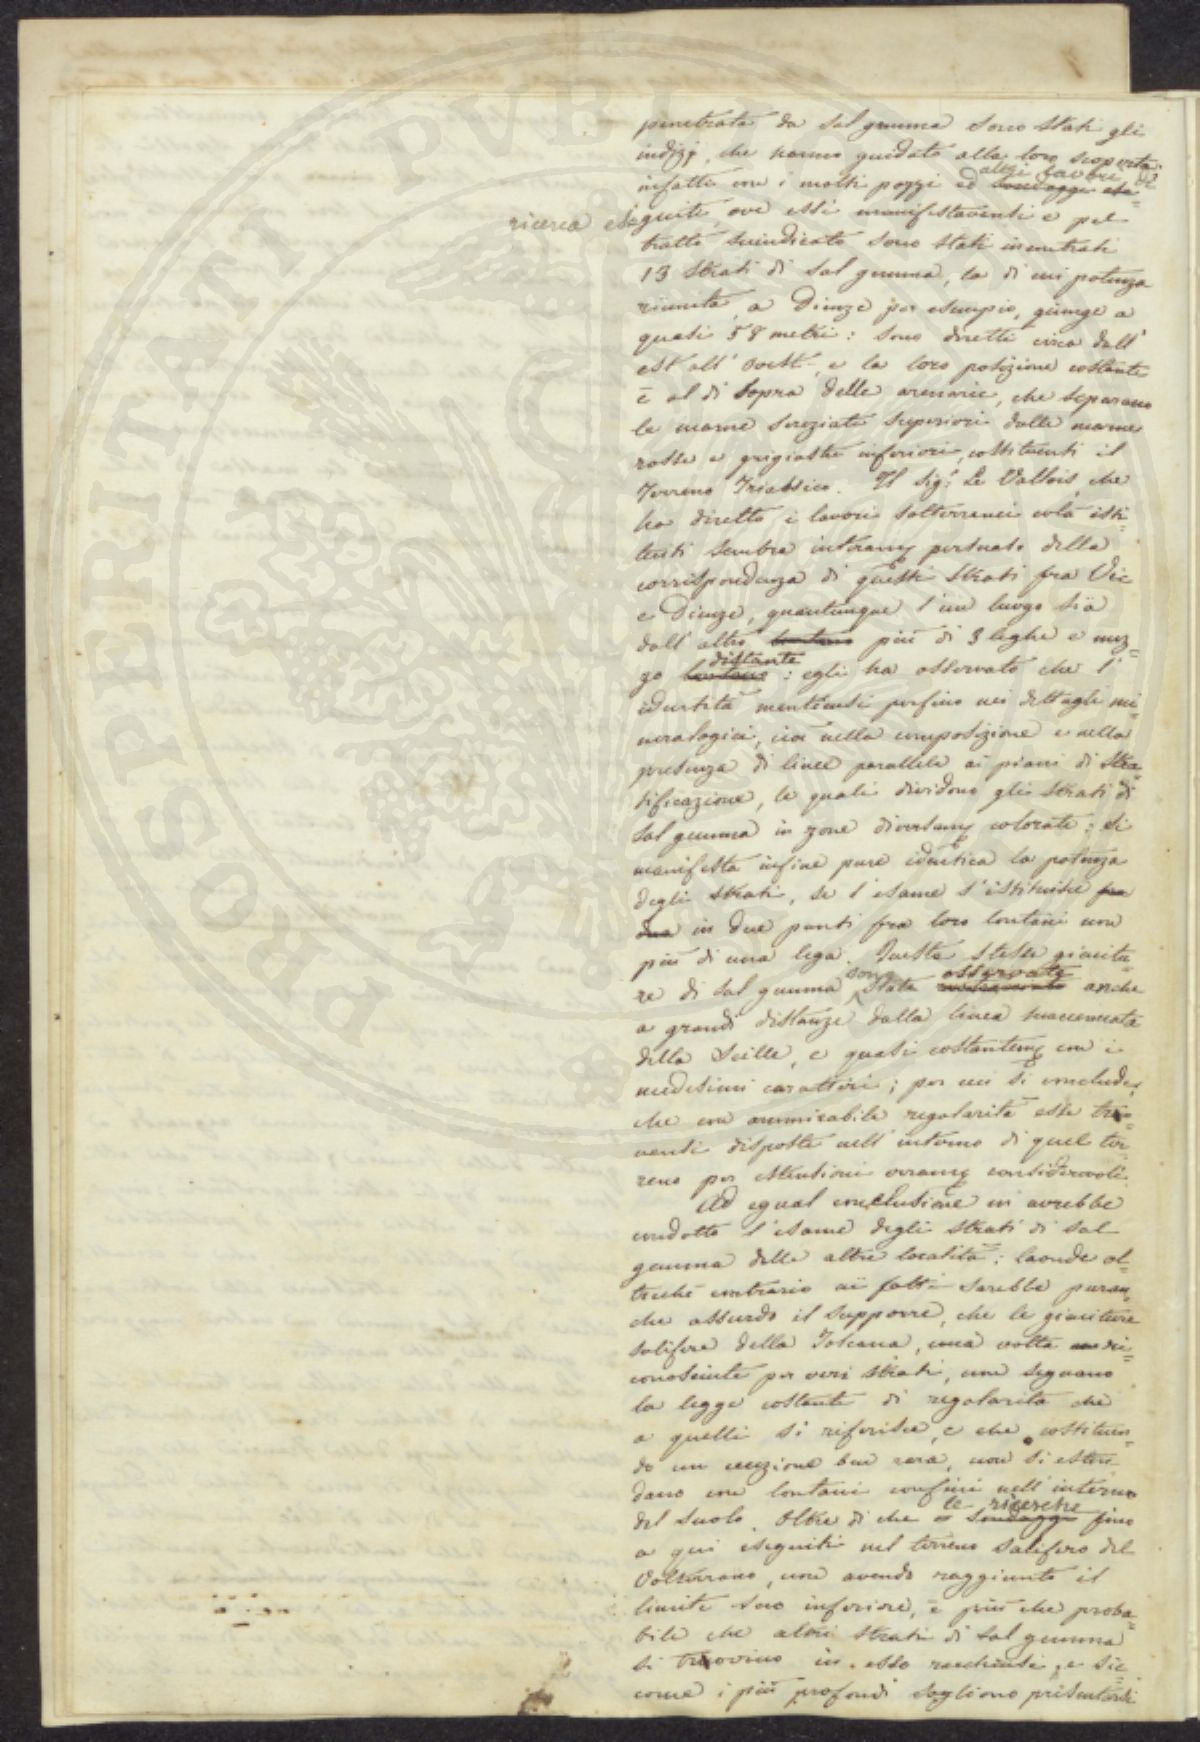 penetrate da sal gemma sono stati gli
indizj, che hanno guidato alla loro scoperta:
infatti con i molti pozzi ed altri lavori di
ricerca eseguiti ove essi manifestavansi e pel
tratto suindicato sono stati incontrati
13 strati di sal gemma, la di cui potenza
riunita, a Dieuze per esempio, giunge a
quasi 58 metri: sono diretti circa dall'
est all' ovest, e la loro posizione costante
è al di sopra delle arenarie, che separano
le marne screziate superiori dalle marne
rosse e grigiastre inferiori, costituenti il
Terreno Triassico. Il Sig.r Le Vallois, che
ha diretto i lavori sotterranei colà isti=
tuiti sembra interam.e persuaso della
corrispondenza di questi strati fra Vic
e Dieuze, quantunque l'un luogo sia
dall' altro lontano più di 3 leghe e mez=
zo distante: egli ha osservato che l'
identità mantiensi perfino nei dettagli mi=
neralogici, cioè nella composizione e nella
presenza di linee parallele ai piani di stra=
tificazione, le quali dividono gli strati di
sal gemma in zone diversam.e colorate: si
manifesta infine pure identica la potenza
degli strati, se l'esame s'istituisce fra
due in due punti fra loro lontani non
più di una lega. Queste stesse giacitu=
re di sal gemma sono state osservate anche
a grandi distanze dalla linea summentovata
della Seille, e quasi costantem.e con i
medesimi caratteri; per cui si conclude,
che con ammirabile regolarità esse tro=
vansi disposte nell' interno di quel ter=
reno per estensioni veram.e considerevoli.
Ad egual conclusione ci avrebbe
condotto l'esame degli strati di sal
gemma delle altre località: laonde ol=
treché contrario ai fatti sarebbe puran
che assurdo il supporre, che le giaciture
salifere della Toscana, una volta ri=
conosciute per veri strati, non seguano
la legge costante di regolarità che
a quelli si riferisce, e che costituen=
do un eccezione ben rara, non si esten
dano con lontani confini nell' interno
del suolo. Oltre di che le ricerche fino
a qui eseguiti nel terreno salifero del
Volterrano, non avendo raggiunto il
limite suo inferiore, è più che proba=
bile che altri strati di sal gemma
si trovino in esso racchiusi, e sic=
come i più profondi sogliono presentarsi